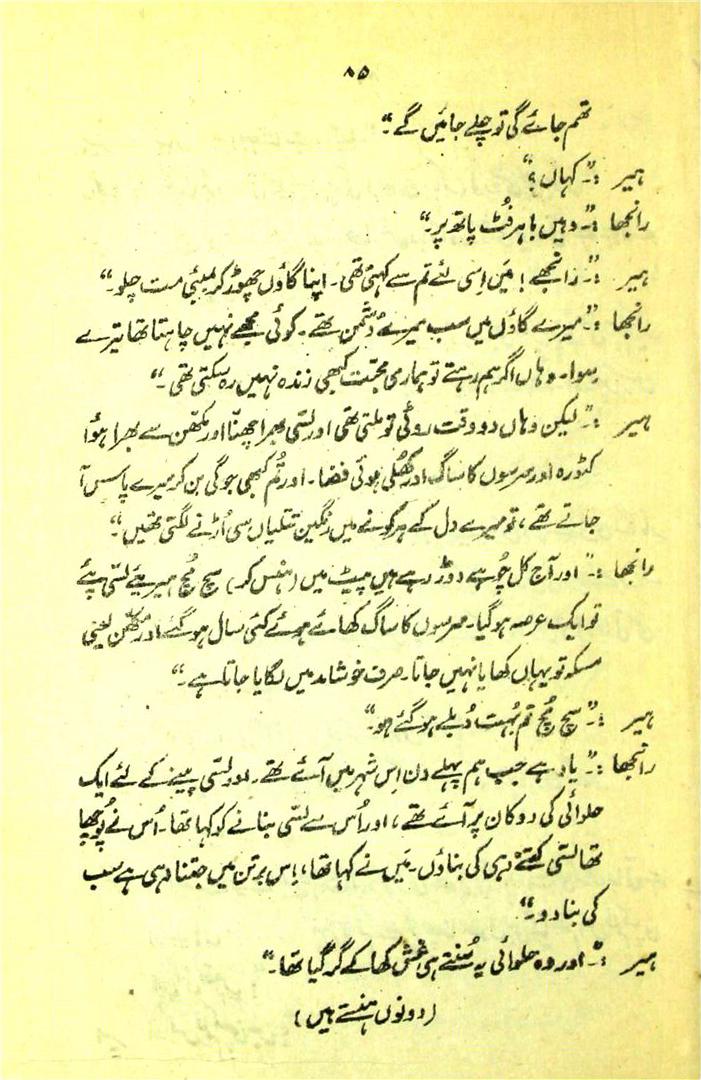 ۸۵
تھم جائے گی تو چلے جائیں گے۔“
ہیر :۔ ”کہاں؟“
رانجھا :۔ ”وہیں باہر فُٹ پاتھ پر۔“
ہیر :۔ ”رانجھے! مَیں اِسی لئے تم سے کہتی تھی۔ اپنا گاؤں چھوڑ کر بمبئی مت چلو۔“
رانجھا :۔ ”میرے گاؤں میں سب میرے دُشمن تھے۔ کوئی مجھے نہیں چاہتا تھا تیرے
سِوا۔ وہاں اگر ہم رہتے تو ہماری محبّت کبھی زندہ نہیں رہ سکتی تھی۔“
ہیر :۔ ”لیکن وہاں دو وقت روٹی تو ملتی تھی اور لسّی بھرا چھنّا اور مکھّن سے بھرا ہوُا
کٹورہ اور سرسوں کا ساگ اور کھُلی ہوئی فضا۔ اور تُم کبھی جوگی بن کر میرے پاس آ
جاتے تھے، تو میرے دل کے ہر گونے میں رنگین تتلیاں سی اُڑنے لگتی تھیں“
رانجھا :۔ ”اور آج کل چُوہے دوڑ رہے ہیں پیٹ میں (ہنس کر) سچ مُچ ہیریئے لسّی پئے
تو ایک عرصہ ہو گیا۔ سرسوں کا ساگ کھائے ہوئے کئی سال ہو گئے اور مکھّن یعنی
مسکہ تو یہاں کھایا نہیں جاتا۔ صرف خوشامد میں لگایا جاتا ہے۔“
ہیر :۔ ”سچ مُچ تم بہُت دُبلے ہو گئے ہو۔“
رانجھا :۔ ”یاد ہے جب ہم پہلے دن اِس شہر میں آئے تھے۔ اور لسّی پینے کے لئے ایک
حلوائی کی دوکان پر آئے تھے، اور اُس سے لسّی بنانے کو کہا تھا۔ اُس نے پُوچھا
تھا لسّی کتنے دہی کی بناؤں۔ مَیں نے کہا تھا، اِس برتن میں جتنا دہی ہے سب
کی بنا دو۔“
ہیر :۔ ”اور وہ حلوائی یہ سُنتے ہی غش کھا کے گر گیا تھا۔“
(دونوں ہنستے ہیں)